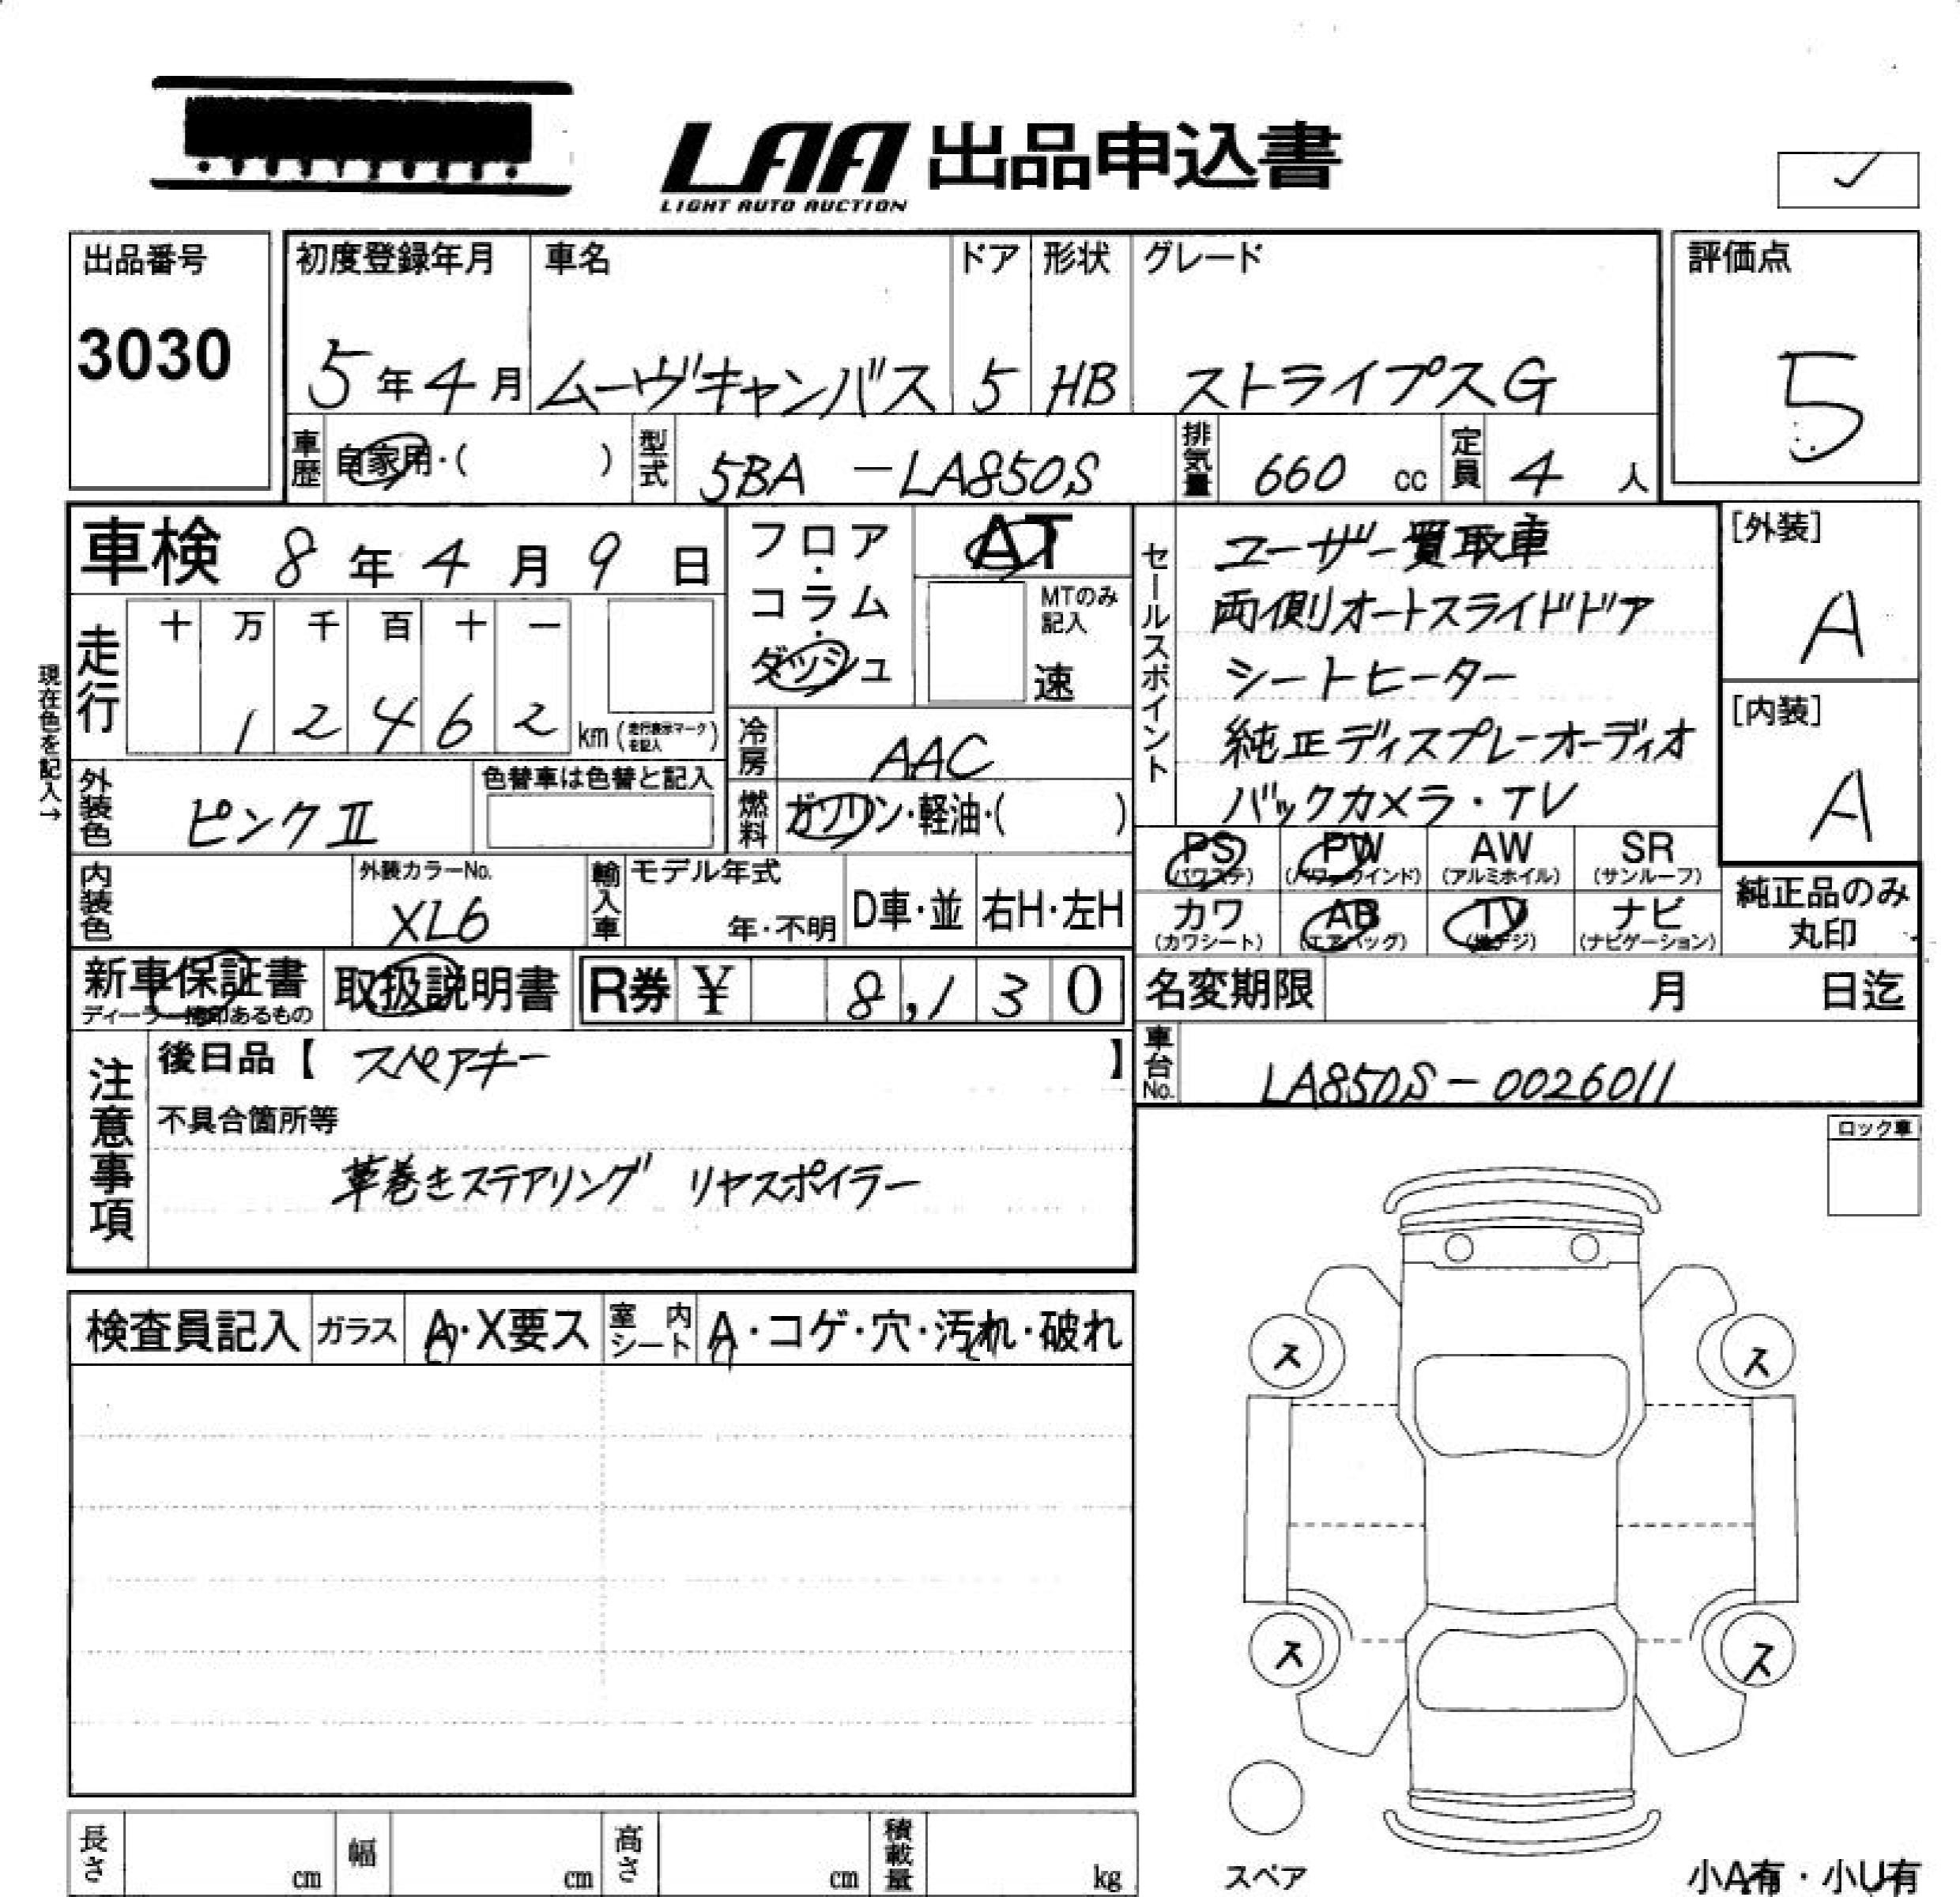 LAA 出品申込書
LIGHT AUTO AUCTION
出品番号
3030
初度登録年月 車名 ドア 形状 グレード
5年4月 ムーヴキャンバス 5 HB ストライプスG
評価点
5
車歴 自家用・( ) 型式 5BA -LA850S 排気量 660 cc 定員 4 人
車検 8年4月9日
フロア・コラム・ダッシュ
AT
MTのみ記入
速
セールスポイント
ユーザー買取車
両側オートスライドドア
シートヒーター
純正ディスプレーオーディオ
バックカメラ・TV
[外装]
A
[内装]
A
現在色を記入→
走行 十 万 千 百 十 一
1 2 4 6 2 km (走行表示マークを記入)
冷房 AAC
外装色 ピンクII 色替車は色替と記入
燃料 ガソリン・軽油・( )
PS (パワステ) PW (パワーウインド) AW (アルミホイル) SR (サンルーフ)
カワ (カワシート) AB (エアバッグ) TV (地デジ) ナビ (ナビゲーション)
純正品のみ
丸印
内装色 外装カラーNo. XL6 輸入車 モデル年式 年・不明 D車・並 右H・左H
新車保証書 取扱説明書 R券 ¥ 8,130
ディーラー捺印あるもの
名変期限 月 日迄
車台No. LA850S-0026011
注意事項
後日品【 スペアキー 】
不具合箇所等
革巻きステアリング リヤスポイラー
ロック車
検査員記入 ガラス A・X要ス 室内シート A・コゲ・穴・汚れ・破れ
ス ス
ス ス
スペア
小A有・小U有
長さ cm 幅 cm 高さ cm 積載量 kg